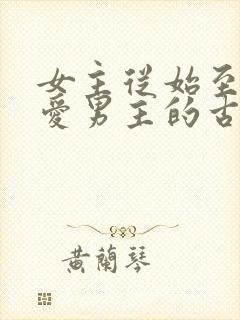 女主從始至
愛男主的古
黃蘭琴